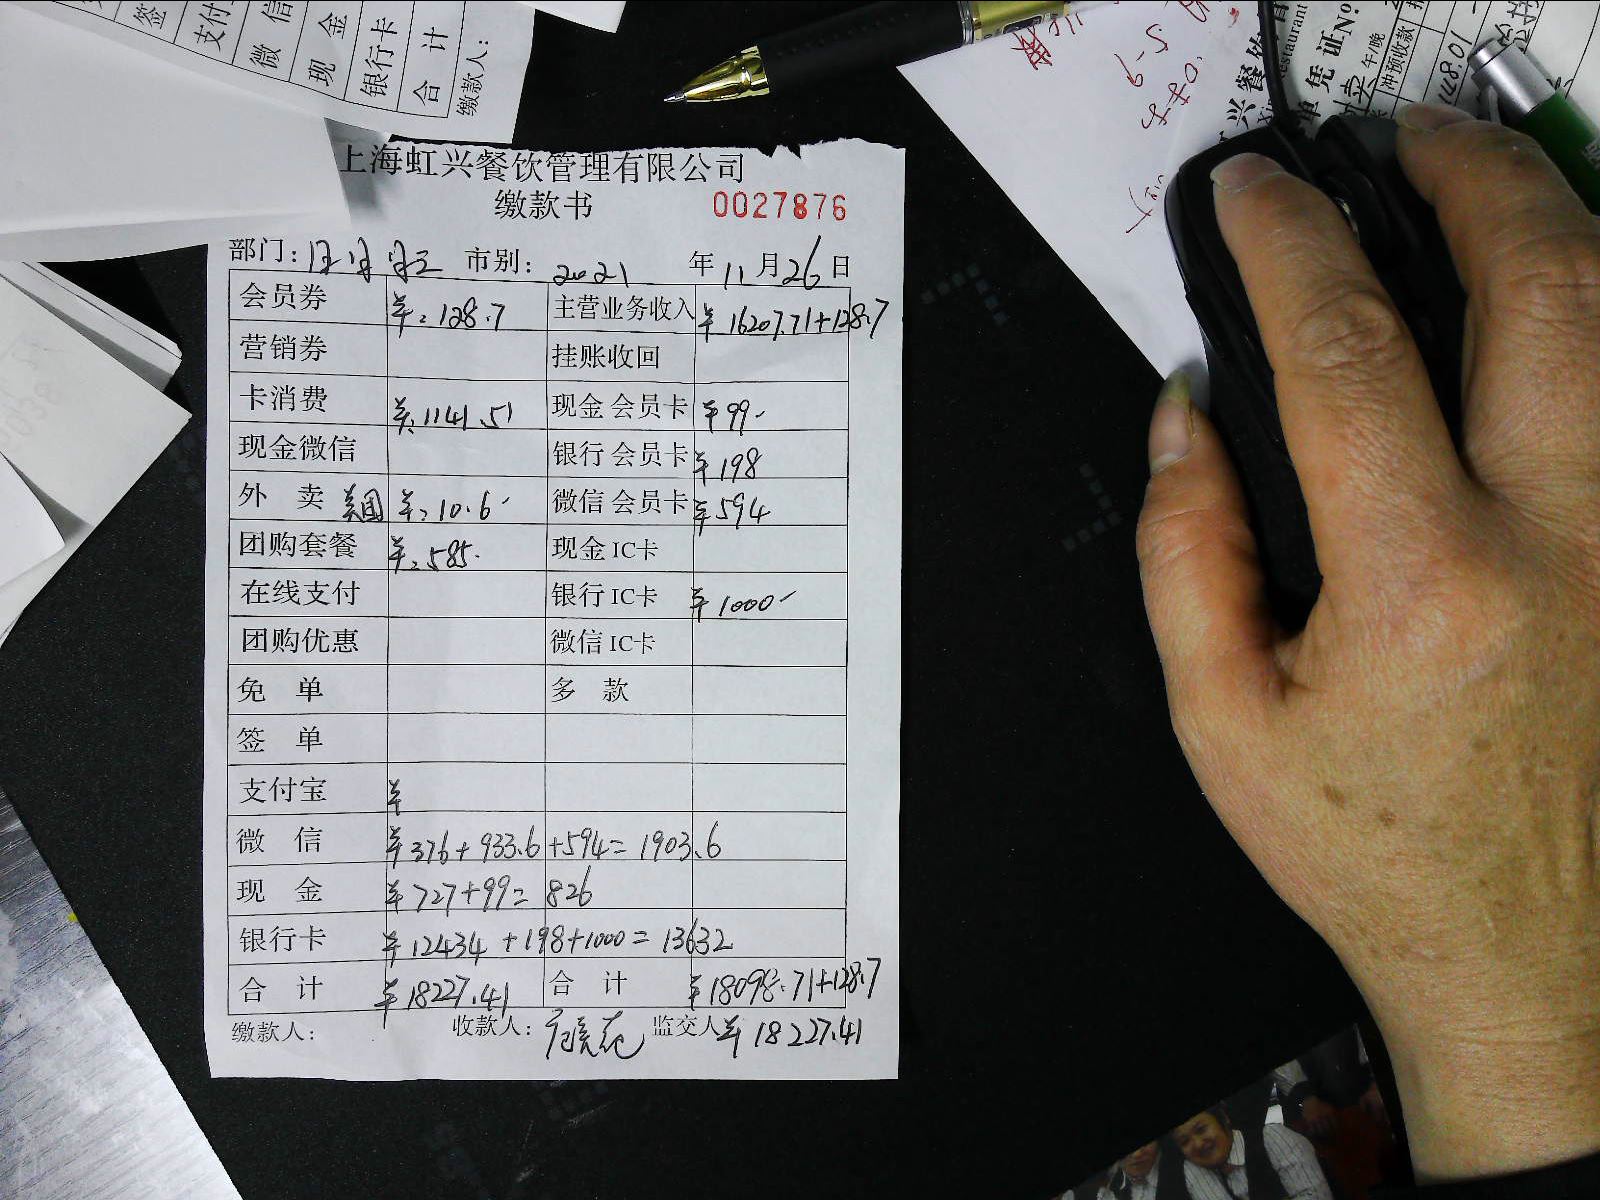 签
支付
微 信
现 金
银行卡
合 计
缴款人:
上海虹兴餐饮管理有限公司
缴款书
0027876
部门: 市别: 2021 年 11 月 26 日
会员券 ¥:128.7 主营业务收入 ¥16207.71+128.7
营销券 挂账收回
卡消费 ¥:1141.51 现金 会员卡 ¥99-
现金微信 银行 会员卡 ¥198
外 卖 美团 ¥:10.6- 微信 会员卡 ¥594
团购套餐 ¥:585. 现金 IC卡
在线支付 银行 IC卡 ¥1000-
团购优惠 微信 IC卡
免 单 多 款
签 单
支付宝 ¥
微 信 ¥376+933.6+594=1903.6
现 金 ¥727+99=826
银行卡 ¥12434+198+1000=13632
合 计 ¥18227.41 合 计 ¥18098.71+128.7
缴款人: 收款人: 监交人 ¥18227.41
兴餐饮
estaurant
单凭证No:
午/晚
冲预收款
128.01
5-9